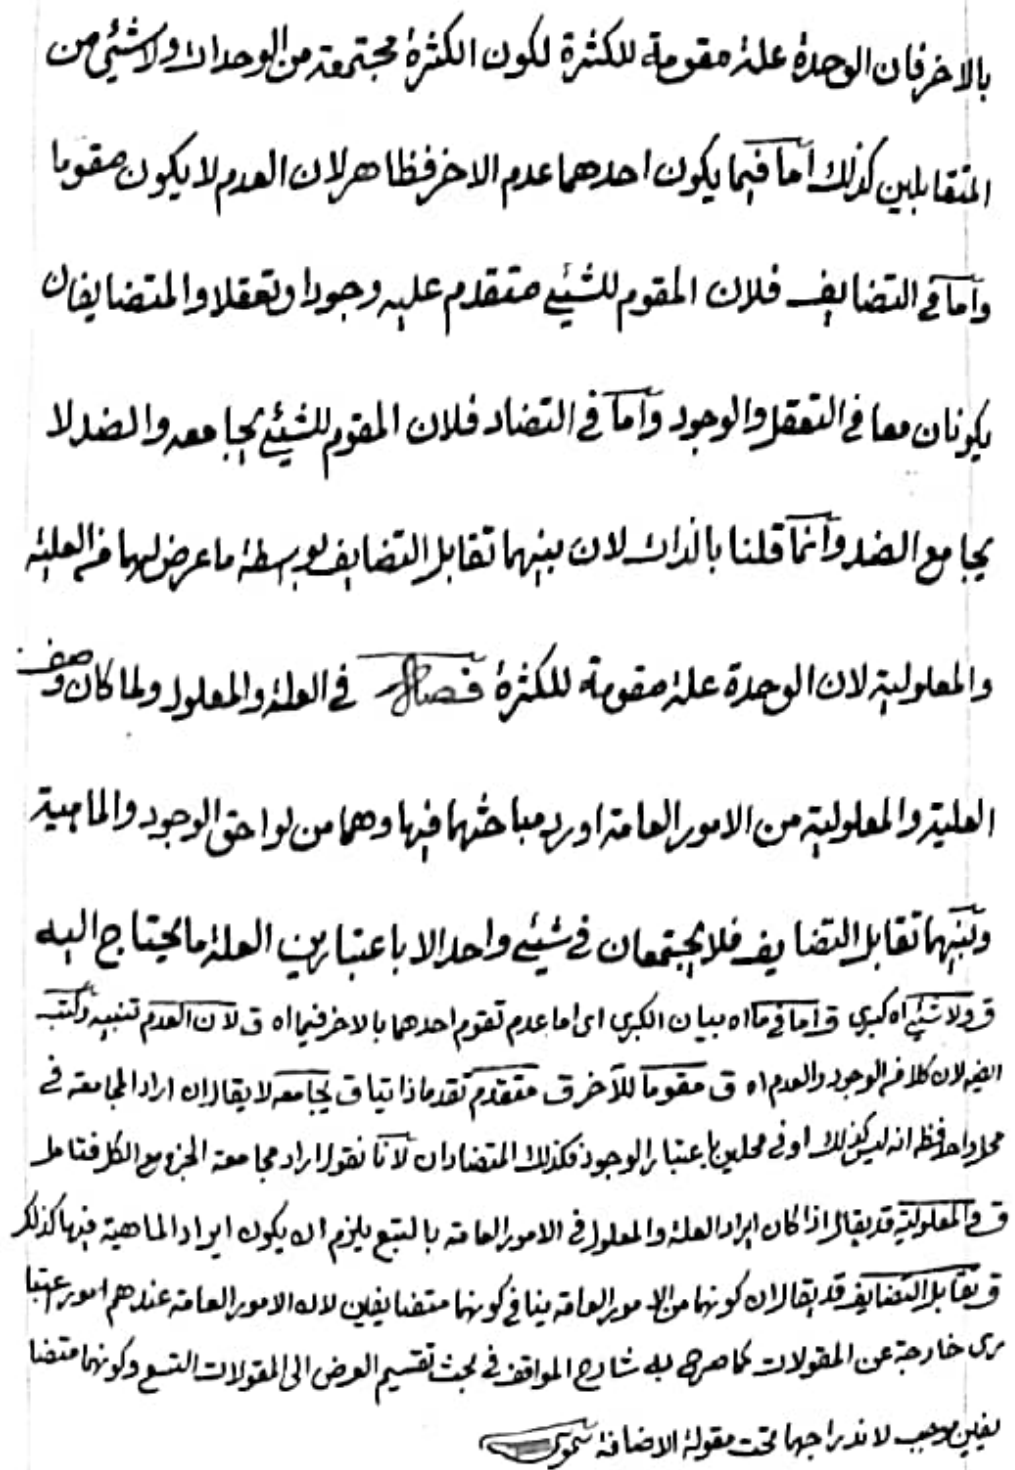 بالاخر فان الوحدة علة مقومة للكثرة لكون الكثرة مجتمعة من الوحدات ولا شيئ من
المتقابلين كذلك اما فيما يكون احدهما عدم الاخر فظاهر لان العدم لا يكون مقوما
واما في التضايف فلان المقوم للشيئ متقدم عليه وجودا وتعقلا والمتضايفان
يكونان معا في التعقل والوجود واما في التضاد فلان المقوم للشيئ يجامعه والضد لا
يجامع الضد وانما قلنا بالذات لان بينهما تقابل التضايف بوسطة ما عرض لهما من العلية
والمعلولية لان الوحدة علة مقومة للكثرة فصل في العلة والمعلول ولما كان وصف
العلية والمعلولية من الامور العامة اورد مباحثهما فيها وهما من لواحق الوجود والماهية
وبينهما تقابل التضايف فلا يجتمعان في شيئ واحد الا باعتبارين العلة ما يحتاج اليه
ق ولا شيئ اه كبرى ق اما في ما اه بيان الكبرى اى اما عدم تقوم احدهما بالاخر فيما اه ق لان العدم تنبيه وكتب
ايضا لان كلا من الوجود والعدم اه ق مقوما للآخر ق متقدم تقدما ذاتيا ق يجامعه لا يقال ان اراد المجامعة في
محل واحد فظ انه ليس كذلك او في محلين باعتبار الوجود فكذلك المتضادان لانا نقول اراد مجامعة الجزء مع الكل فتامل
ق والمعلولية قد يقال اذا كان ايراد العلة والمعلول في الامور العامة بالتبع يلزم ان يكون ايراد الماهية فيها كذلك
ق تقابل التضايف قد يقال ان كونهما من الامور العامة ينافي كونهما متضايفين لان الامور العامة عندهم امور اعتبا
رى خارجة عن المقولات كما صرح به شارح المواقف في بحث تقسيم العرض الى المقولات التسع وكونهما متضا
يفين موجب لاندراجهما تحت مقولة الاضافة